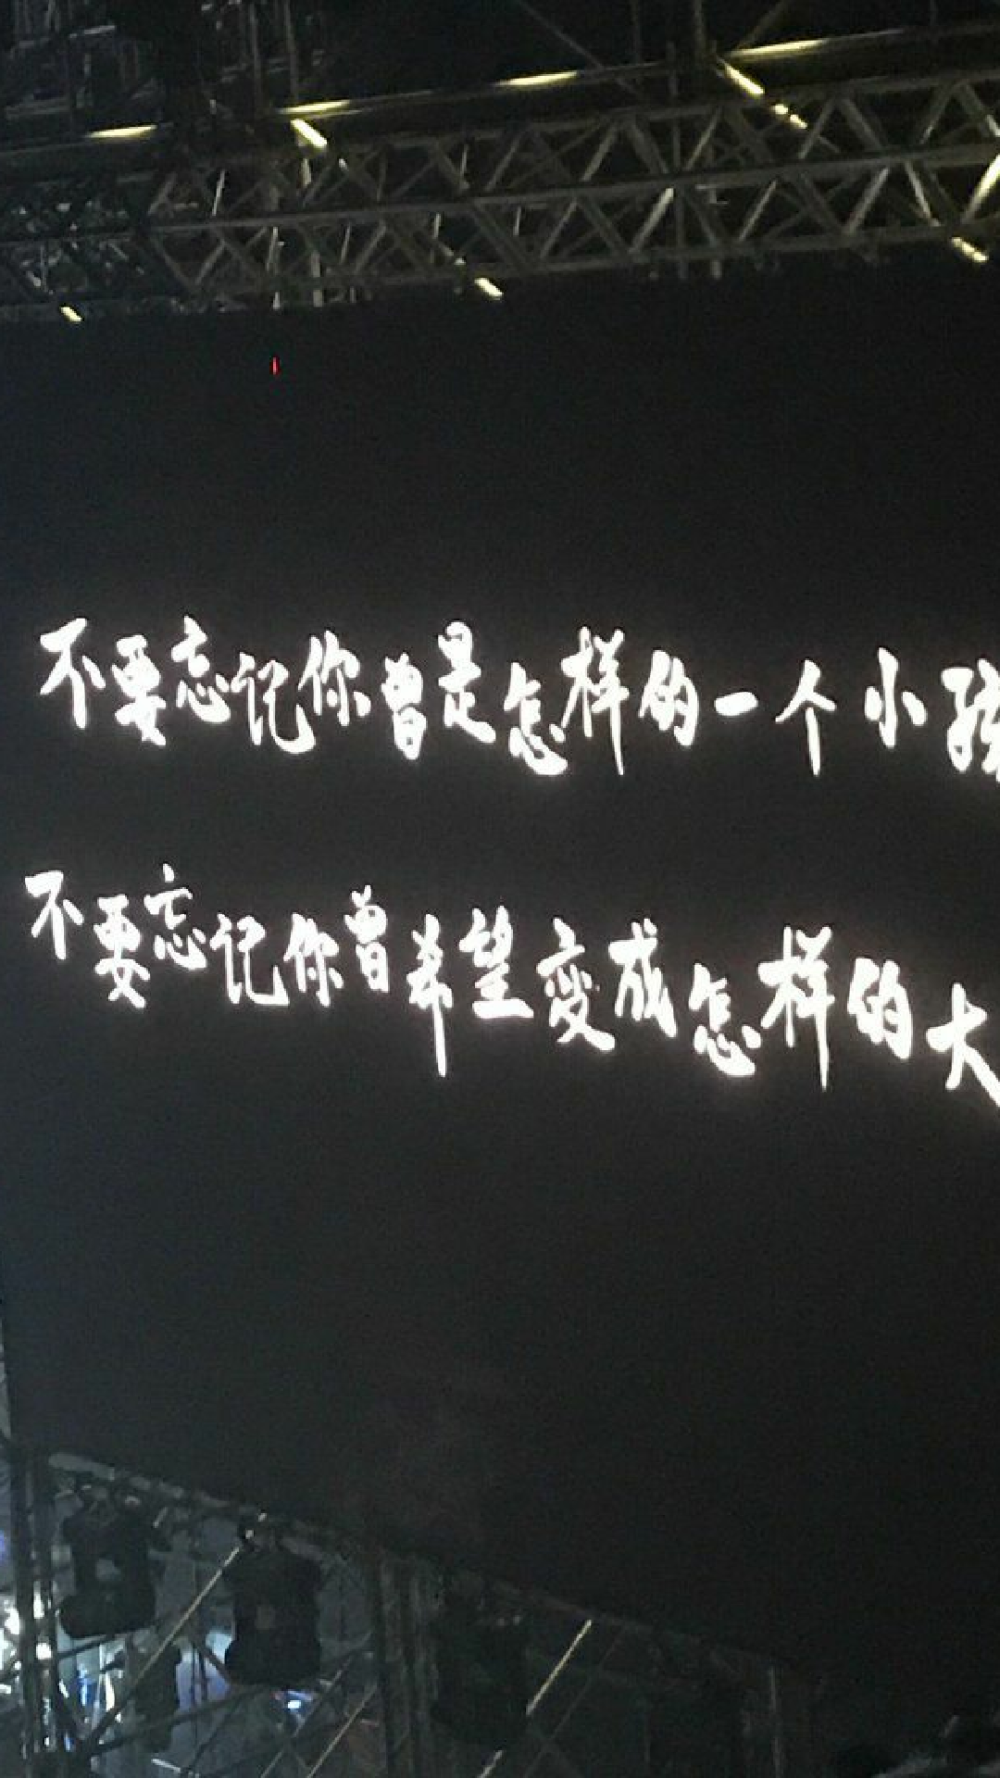 不要忘记你曾是怎样的一个小孩
不要忘记你曾希望变成怎样的大